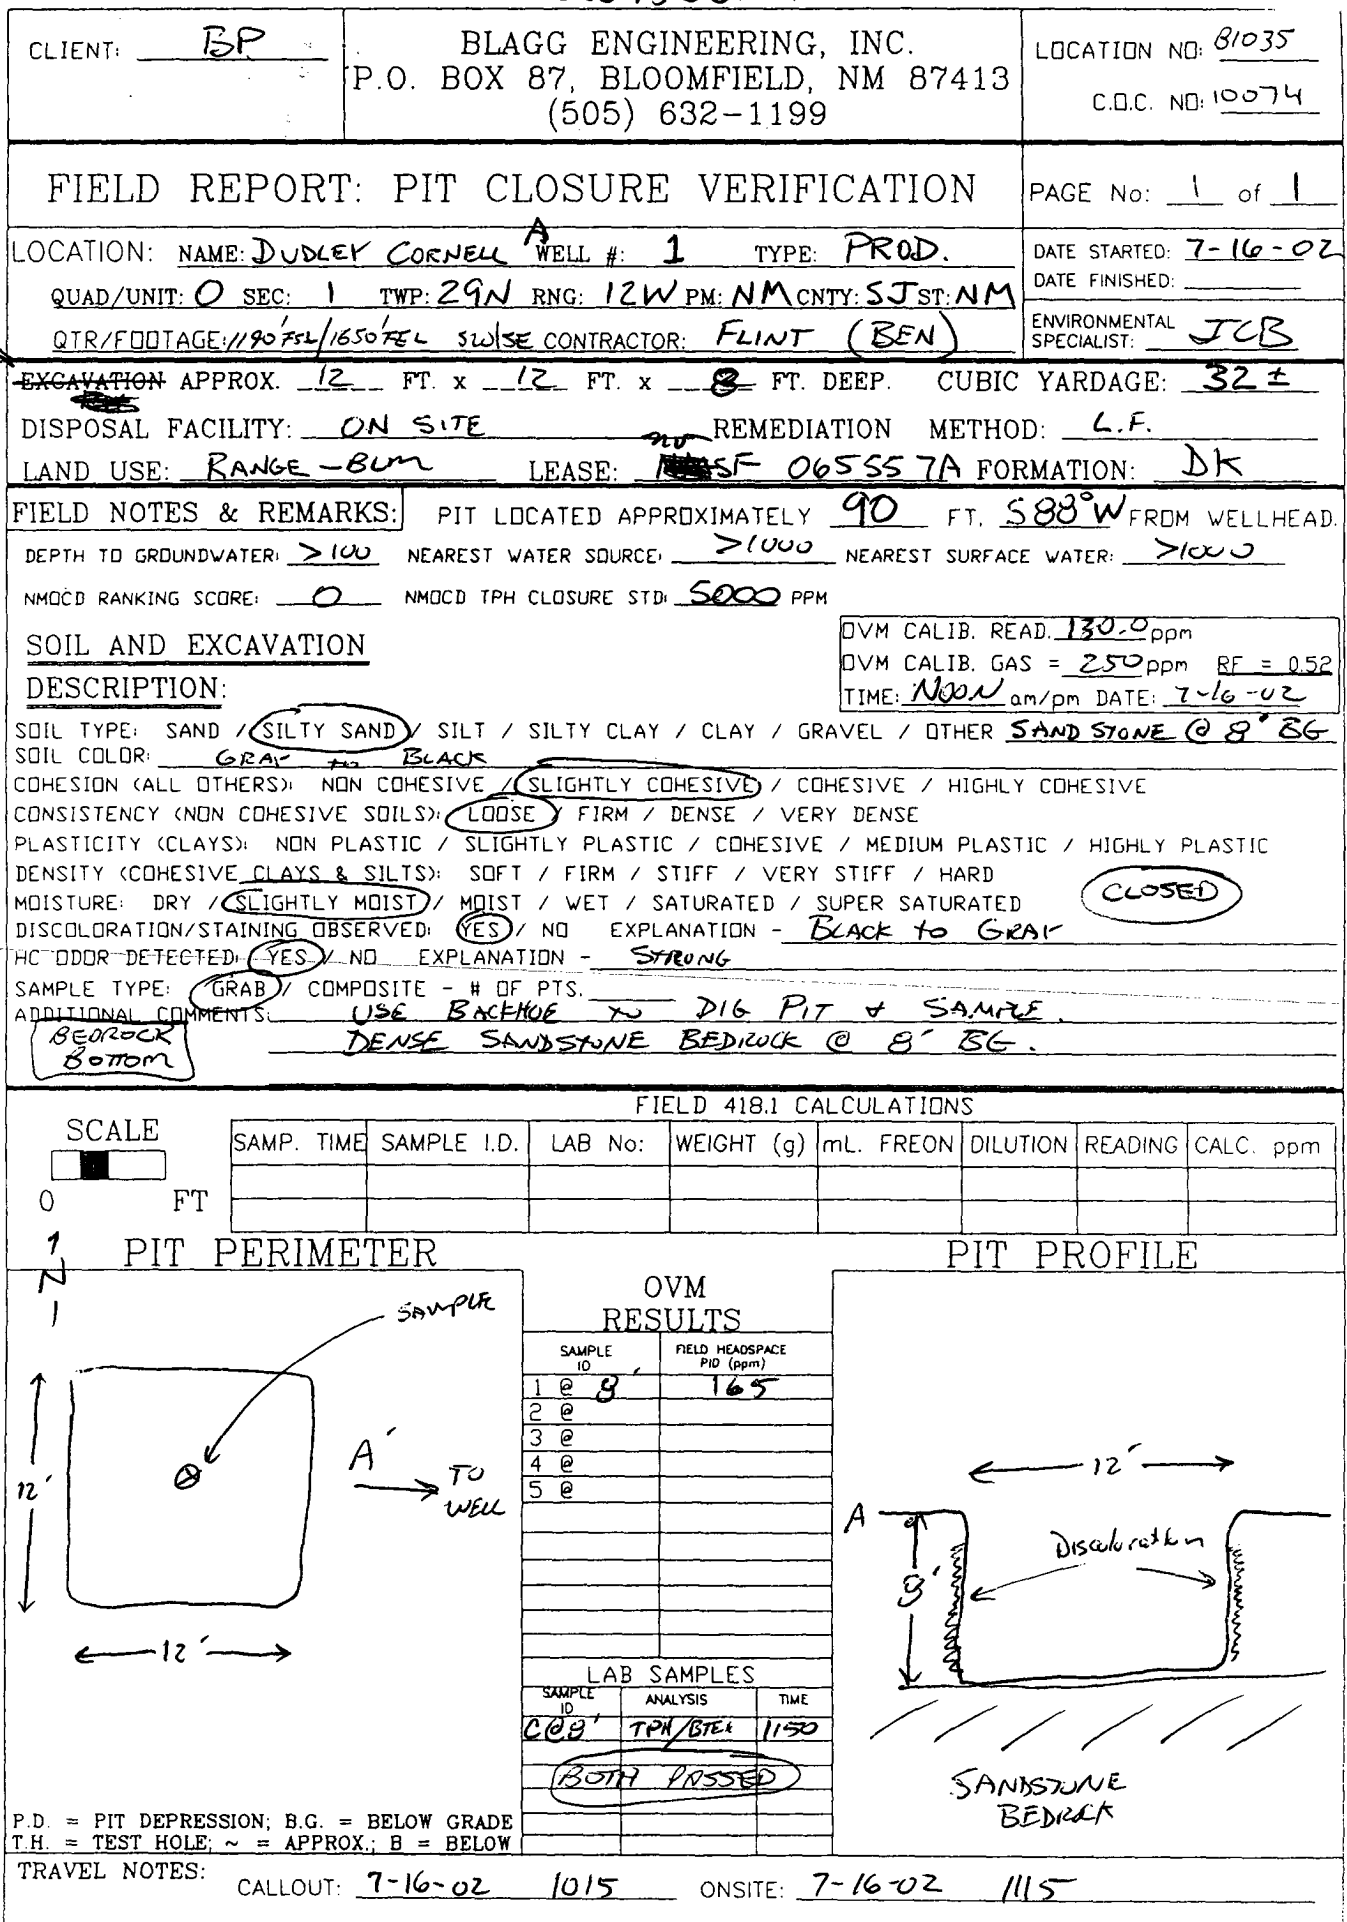 CLIENT: BP
BLAGG ENGINEERING, INC.
P.O. BOX 87, BLOOMFIELD, NM 87413
(505) 632-1199
LOCATION NO: 81035
C.O.C. NO: 10074
FIELD REPORT: PIT CLOSURE VERIFICATION
PAGE No: 1 of 1
LOCATION: NAME: DUDLEY CORNELL A WELL #: 1 TYPE: PROD.
QUAD/UNIT: O SEC: 1 TWP: 29N RNG: 12W PM: NM CNTY: SJ ST: NM
QTR/FOOTAGE: 1190'FSL/1650'FEL SW/SE CONTRACTOR: FLINT (BEN)
DATE STARTED: 7-16-02
DATE FINISHED:
ENVIRONMENTAL SPECIALIST: JCB
EXCAVATION APPROX. 12 FT. x 12 FT. x 8 FT. DEEP. CUBIC YARDAGE: 32 ±
DISPOSAL FACILITY: ON SITE REMEDIATION METHOD: L.F.
LAND USE: RANGE - BLM LEASE: SF 065557A FORMATION: DK
FIELD NOTES & REMARKS: PIT LOCATED APPROXIMATELY 90 FT. S88°W FROM WELLHEAD.
DEPTH TO GROUNDWATER: >100 NEAREST WATER SOURCE: >1000 NEAREST SURFACE WATER: >1000
NMOCD RANKING SCORE: 0 NMOCD TPH CLOSURE STD: 5000 PPM
SOIL AND EXCAVATION
DESCRIPTION:
OVM CALIB. READ. 130.0 ppm
OVM CALIB. GAS = 250 ppm RF = 0.52
TIME: NOON am/pm DATE: 7-16-02
SOIL TYPE: SAND / SILTY SAND / SILT / SILTY CLAY / CLAY / GRAVEL / OTHER SANDSTONE @ 8' BG
SOIL COLOR: GRAY to BLACK
COHESION (ALL OTHERS): NON COHESIVE / SLIGHTLY COHESIVE / COHESIVE / HIGHLY COHESIVE
CONSISTENCY (NON COHESIVE SOILS): LOOSE / FIRM / DENSE / VERY DENSE
PLASTICITY (CLAYS): NON PLASTIC / SLIGHTLY PLASTIC / COHESIVE / MEDIUM PLASTIC / HIGHLY PLASTIC
DENSITY (COHESIVE CLAYS & SILTS): SOFT / FIRM / STIFF / VERY STIFF / HARD
MOISTURE: DRY / SLIGHTLY MOIST / MOIST / WET / SATURATED / SUPER SATURATED
CLOSED
DISCOLORATION/STAINING OBSERVED: YES / NO EXPLANATION - BLACK to GRAY
HC ODOR DETECTED: YES / NO EXPLANATION - STRONG
SAMPLE TYPE: GRAB / COMPOSITE - # OF PTS.
ADDITIONAL COMMENTS: USE BACKHOE to DIG PIT & SAMPLE.
BEDROCK BOTTOM
DENSE SANDSTONE BEDROCK @ 8' BG.
FIELD 418.1 CALCULATIONS
SCALE
0 FT
SAMP. TIME SAMPLE I.D. LAB No: WEIGHT (g) mL. FREON DILUTION READING CALC. ppm
N
PIT PERIMETER
PIT PROFILE
OVM
RESULTS
SAMPLE ID FIELD HEADSPACE PID (ppm)
1 @ 8' 165
2 @
3 @
4 @
5 @
SAMPLE
A'
TO WELL
12'
12'
12'
A
Discoloration
8'
SANDSTONE
BEDROCK
LAB SAMPLES
SAMPLE ID ANALYSIS TIME
C@8' TPH/BTEX 1150
BOTH PASSED
P.D. = PIT DEPRESSION; B.G. = BELOW GRADE
T.H. = TEST HOLE; ~ = APPROX.; B = BELOW
TRAVEL NOTES: CALLOUT: 7-16-02 1015 ONSITE: 7-16-02 1115